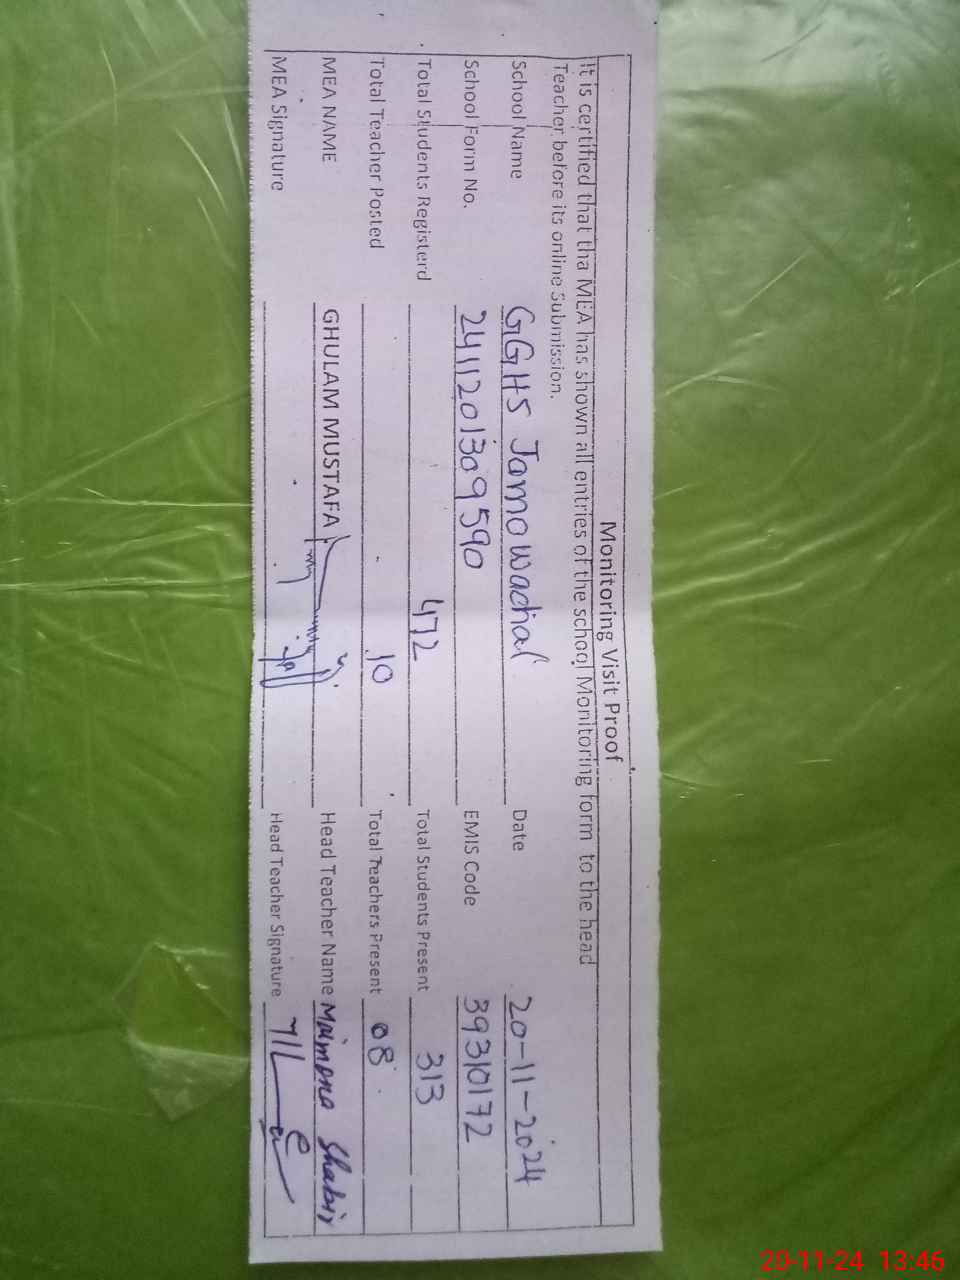 Monitoring Visit Proof
It is certified that tha MEA has shown all entries of the school Monitoring form to the head
Teacher before its online Submission.
School Name GGHS Jamowachal Date 20-11-2024
School Form No. 2411201309590 EMIS Code 39310172
Total Students Registerd 472 Total Students Present 313
Total Teacher Posted 10 Total Teachers Present 08
MEA NAME GHULAM MUSTAFA Head Teacher Name Maimona Shabir
MEA Signature Head Teacher Signature
20-11-24 13:46